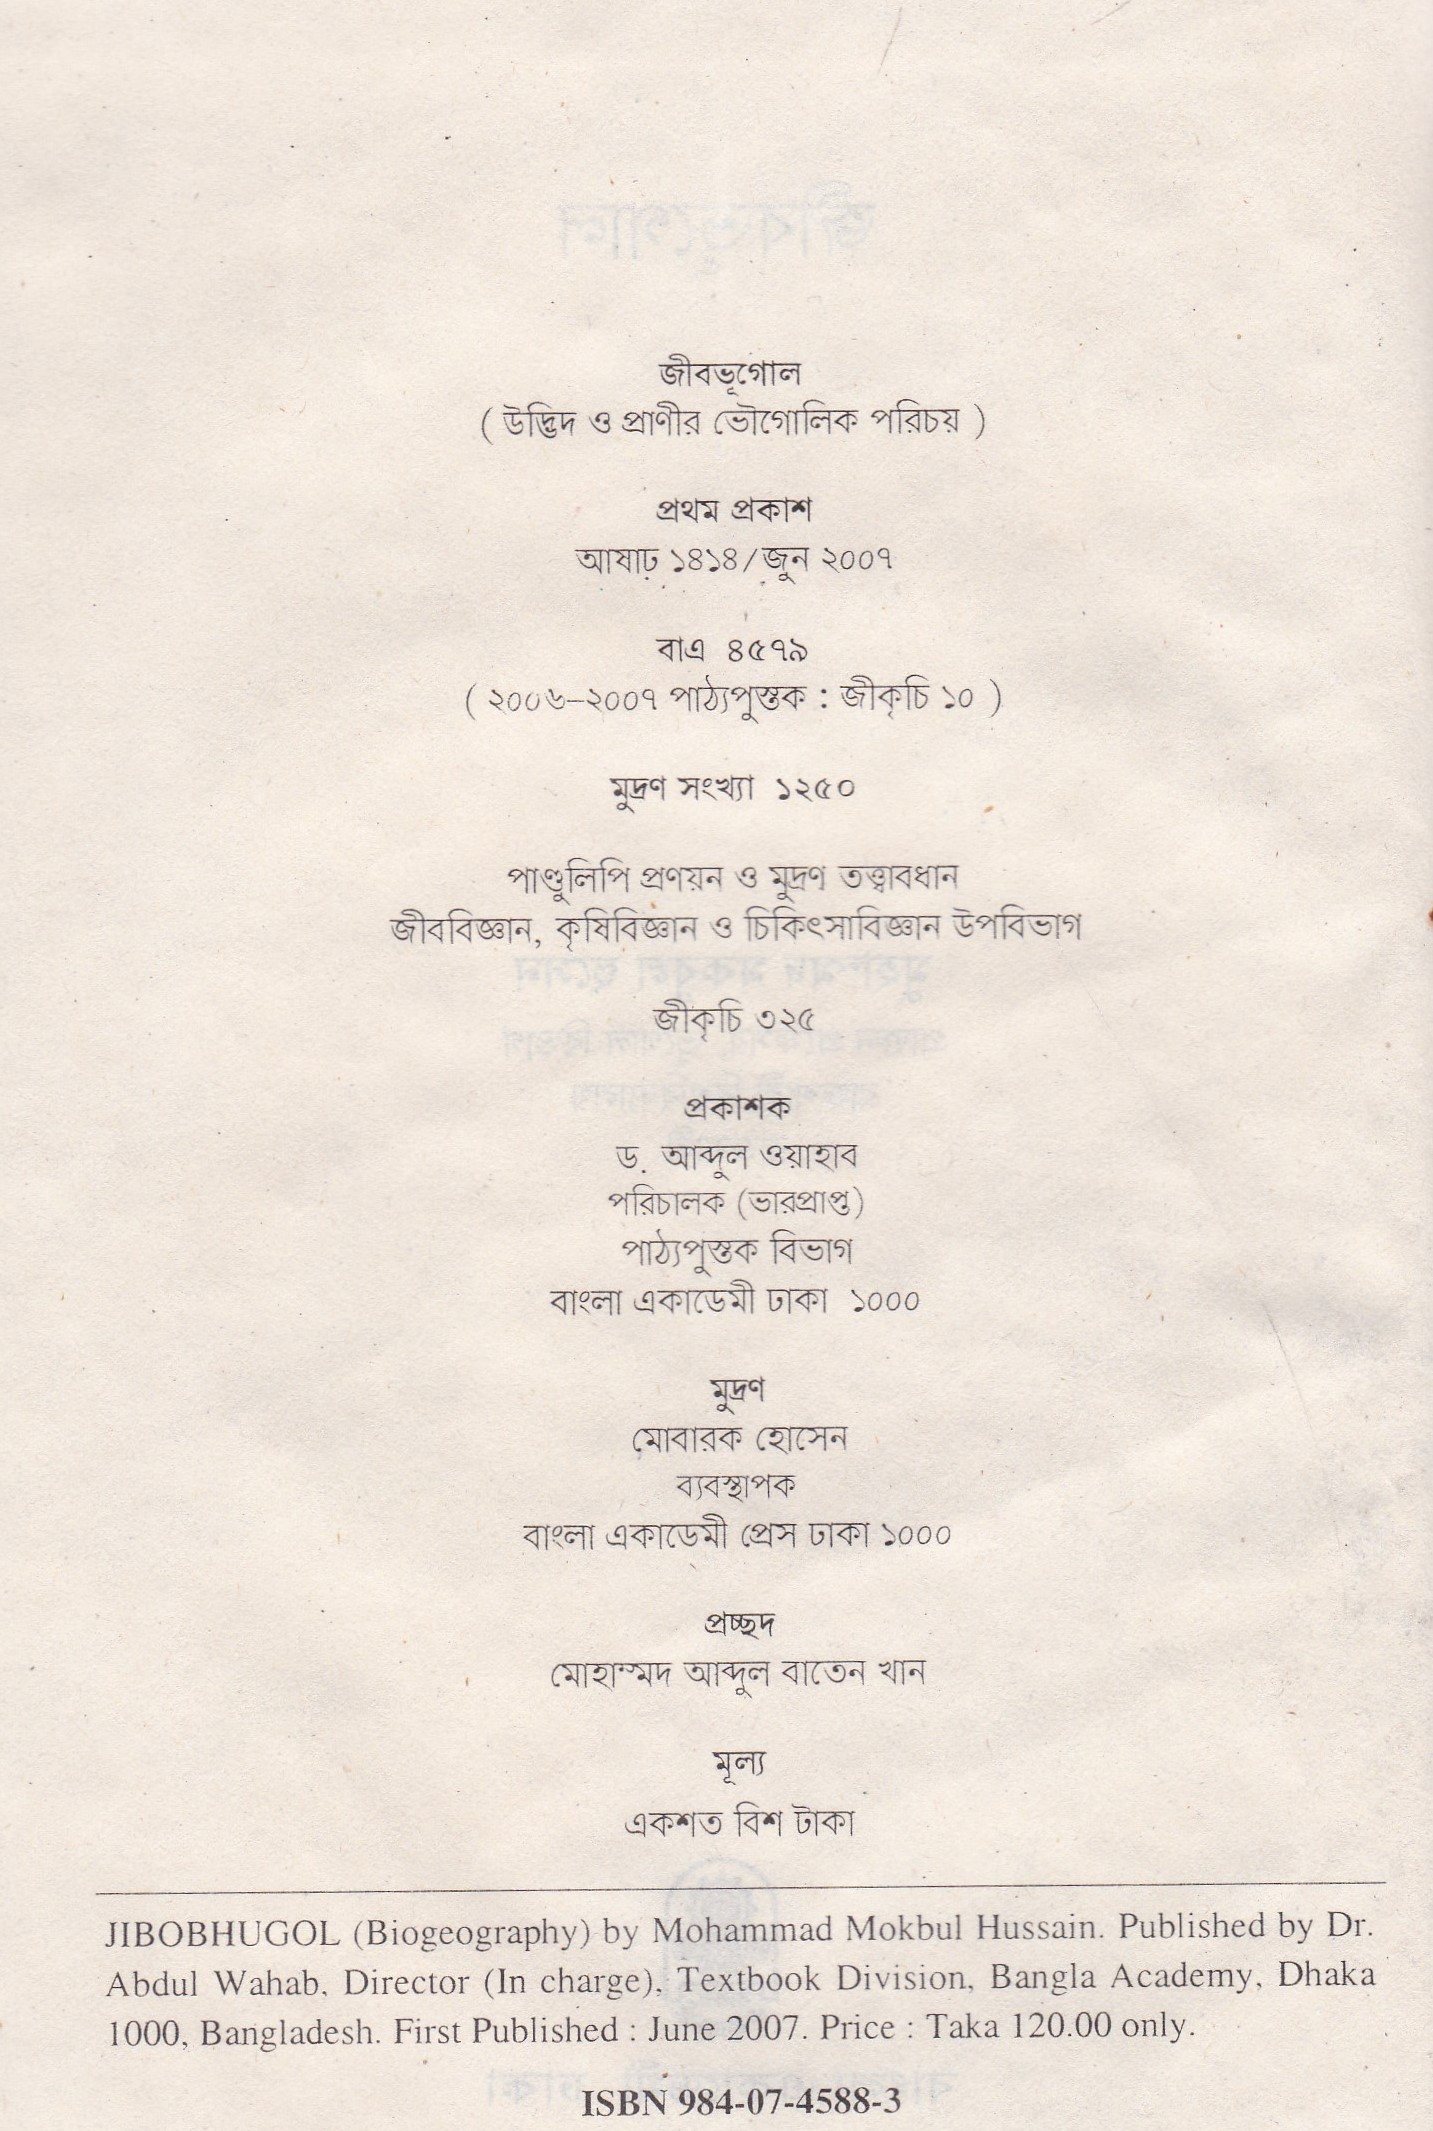 জীবভূগোল
( উদ্ভিদ ও প্রাণীর ভৌগোলিক পরিচয় )
প্রথম প্রকাশ
আষাঢ় ১৪১৪/জুন ২০০৭
বাএ ৪৫৭৯
( ২০০৬–২০০৭ পাঠ্যপুস্তক : জীকৃচি ১০ )
মুদ্রণ সংখ্যা ১২৫০
পাণ্ডুলিপি প্রণয়ন ও মুদ্রণ তত্ত্বাবধান
জীববিজ্ঞান, কৃষিবিজ্ঞান ও চিকিৎসাবিজ্ঞান উপবিভাগ
জীকৃচি ৩২৫
প্রকাশক
ড. আব্দুল ওয়াহাব
পরিচালক (ভারপ্রাপ্ত)
পাঠ্যপুস্তক বিভাগ
বাংলা একাডেমী ঢাকা ১০০০
মুদ্রণ
মোবারক হোসেন
ব্যবস্থাপক
বাংলা একাডেমী প্রেস ঢাকা ১০০০
প্রচ্ছদ
মোহাম্মদ আব্দুল বাতেন খান
মূল্য
একশত বিশ টাকা
JIBOBHUGOL (Biogeography) by Mohammad Mokbul Hussain. Published by Dr.
Abdul Wahab, Director (In charge), Textbook Division, Bangla Academy, Dhaka
1000, Bangladesh. First Published : June 2007. Price : Taka 120.00 only.
ISBN 984-07-4588-3